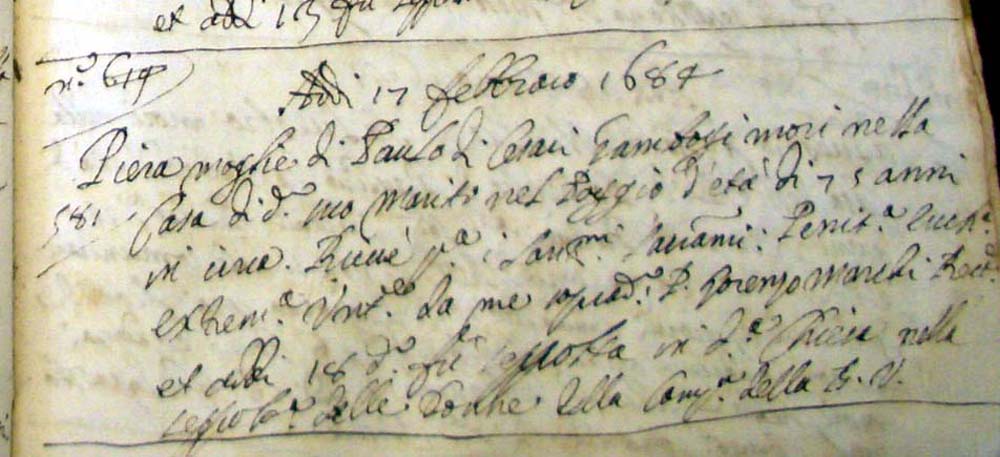 et addi 13 fu
n.º 614
Addi 17 febbraio 1684
Piera moglie di Paulo di Cesari Gambogi morì nella
581 Casa di d.º suo marito nel Poggio d'età di 75 anni
in circa. Ricevé p.ª i San.mi Sacram.: Penit.ª Euch.ª
extrem.ª Unt.e da me soprad.º P. Lorenzo Marchi Rect.
et addi 18 d.º fu sepolta in d.ª Chiesa nella
sepolt.ª delle Donne della Comp.ª della B. V.